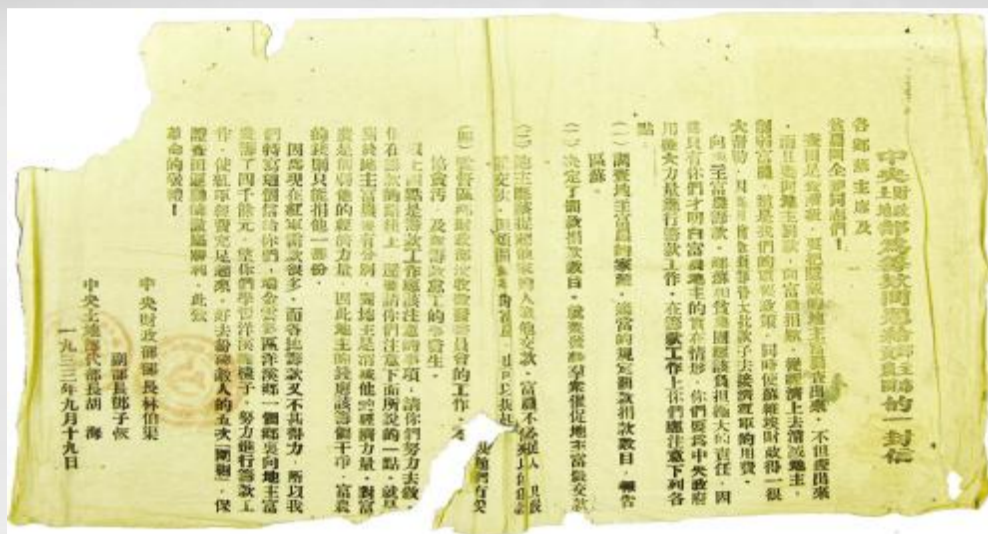 中央財政部土地部為籌款問題給鄉主席貧農團的一封信
各鄉蘇主席及
貧農團全部同志們！
查田是查階級，要把隱藏的地主富農查出來，不但查出來
，而且要向地主罰款，向富農捐款，從經濟上去消滅地主，
削弱富農，這是我們的 政策，同時使蘇維埃財政得一很
大帮助，因 大批款子去接濟紅軍的用費。
向地主富農籌款，鄉蘇和貧農團應該負担極大的責任，因
為只有你們才明白富農地主的實在情形，你們要為中央政府
用極大力量進行籌款工作，在籌款工作上你們應注意下列各
點：
（一）調查地主富農的家產，適當的規定罰款捐款數目，報告
區蘇。
（二）決定了罰款捐款數目，就要發動羣衆催促地主富農交款
（三）地主應該捉起他家裏人 他交款，富農不 捉人，
（四） 區鄉財政部沒收徵發委員會的工作，
貪污，及 籌款怠工的 發生。
以上四點是籌款工作應該注意的事項，請你們努力去做。
但在籌款的路綫上，還要請你們注意下面所說的一點，就是
籌款地主富農要有分別，對地主是消滅他的經濟力量，對富
農是削弱他的經濟力量，因此地主的錢應該籌個干净，富農
的錢則只能捐他一部份。
因為現在紅軍需款很多，而各地籌款又不甚努力，所以我
們特寫這個信給你們，瑞金雲集區洋溪鄉一個鄉裏向地主富
農籌了四千餘元，望你們學習洋溪鄉的樣子，努力進行籌款工
作，使紅軍經費充足起來，好去粉碎敵人的五次「圍剿」，保
證查田運動的澈底勝利，此致
革命的敬禮！
中央財政部部長林伯渠
副部長鄧子恢
中央土地部代部長胡 海
一九三三年九月十九日